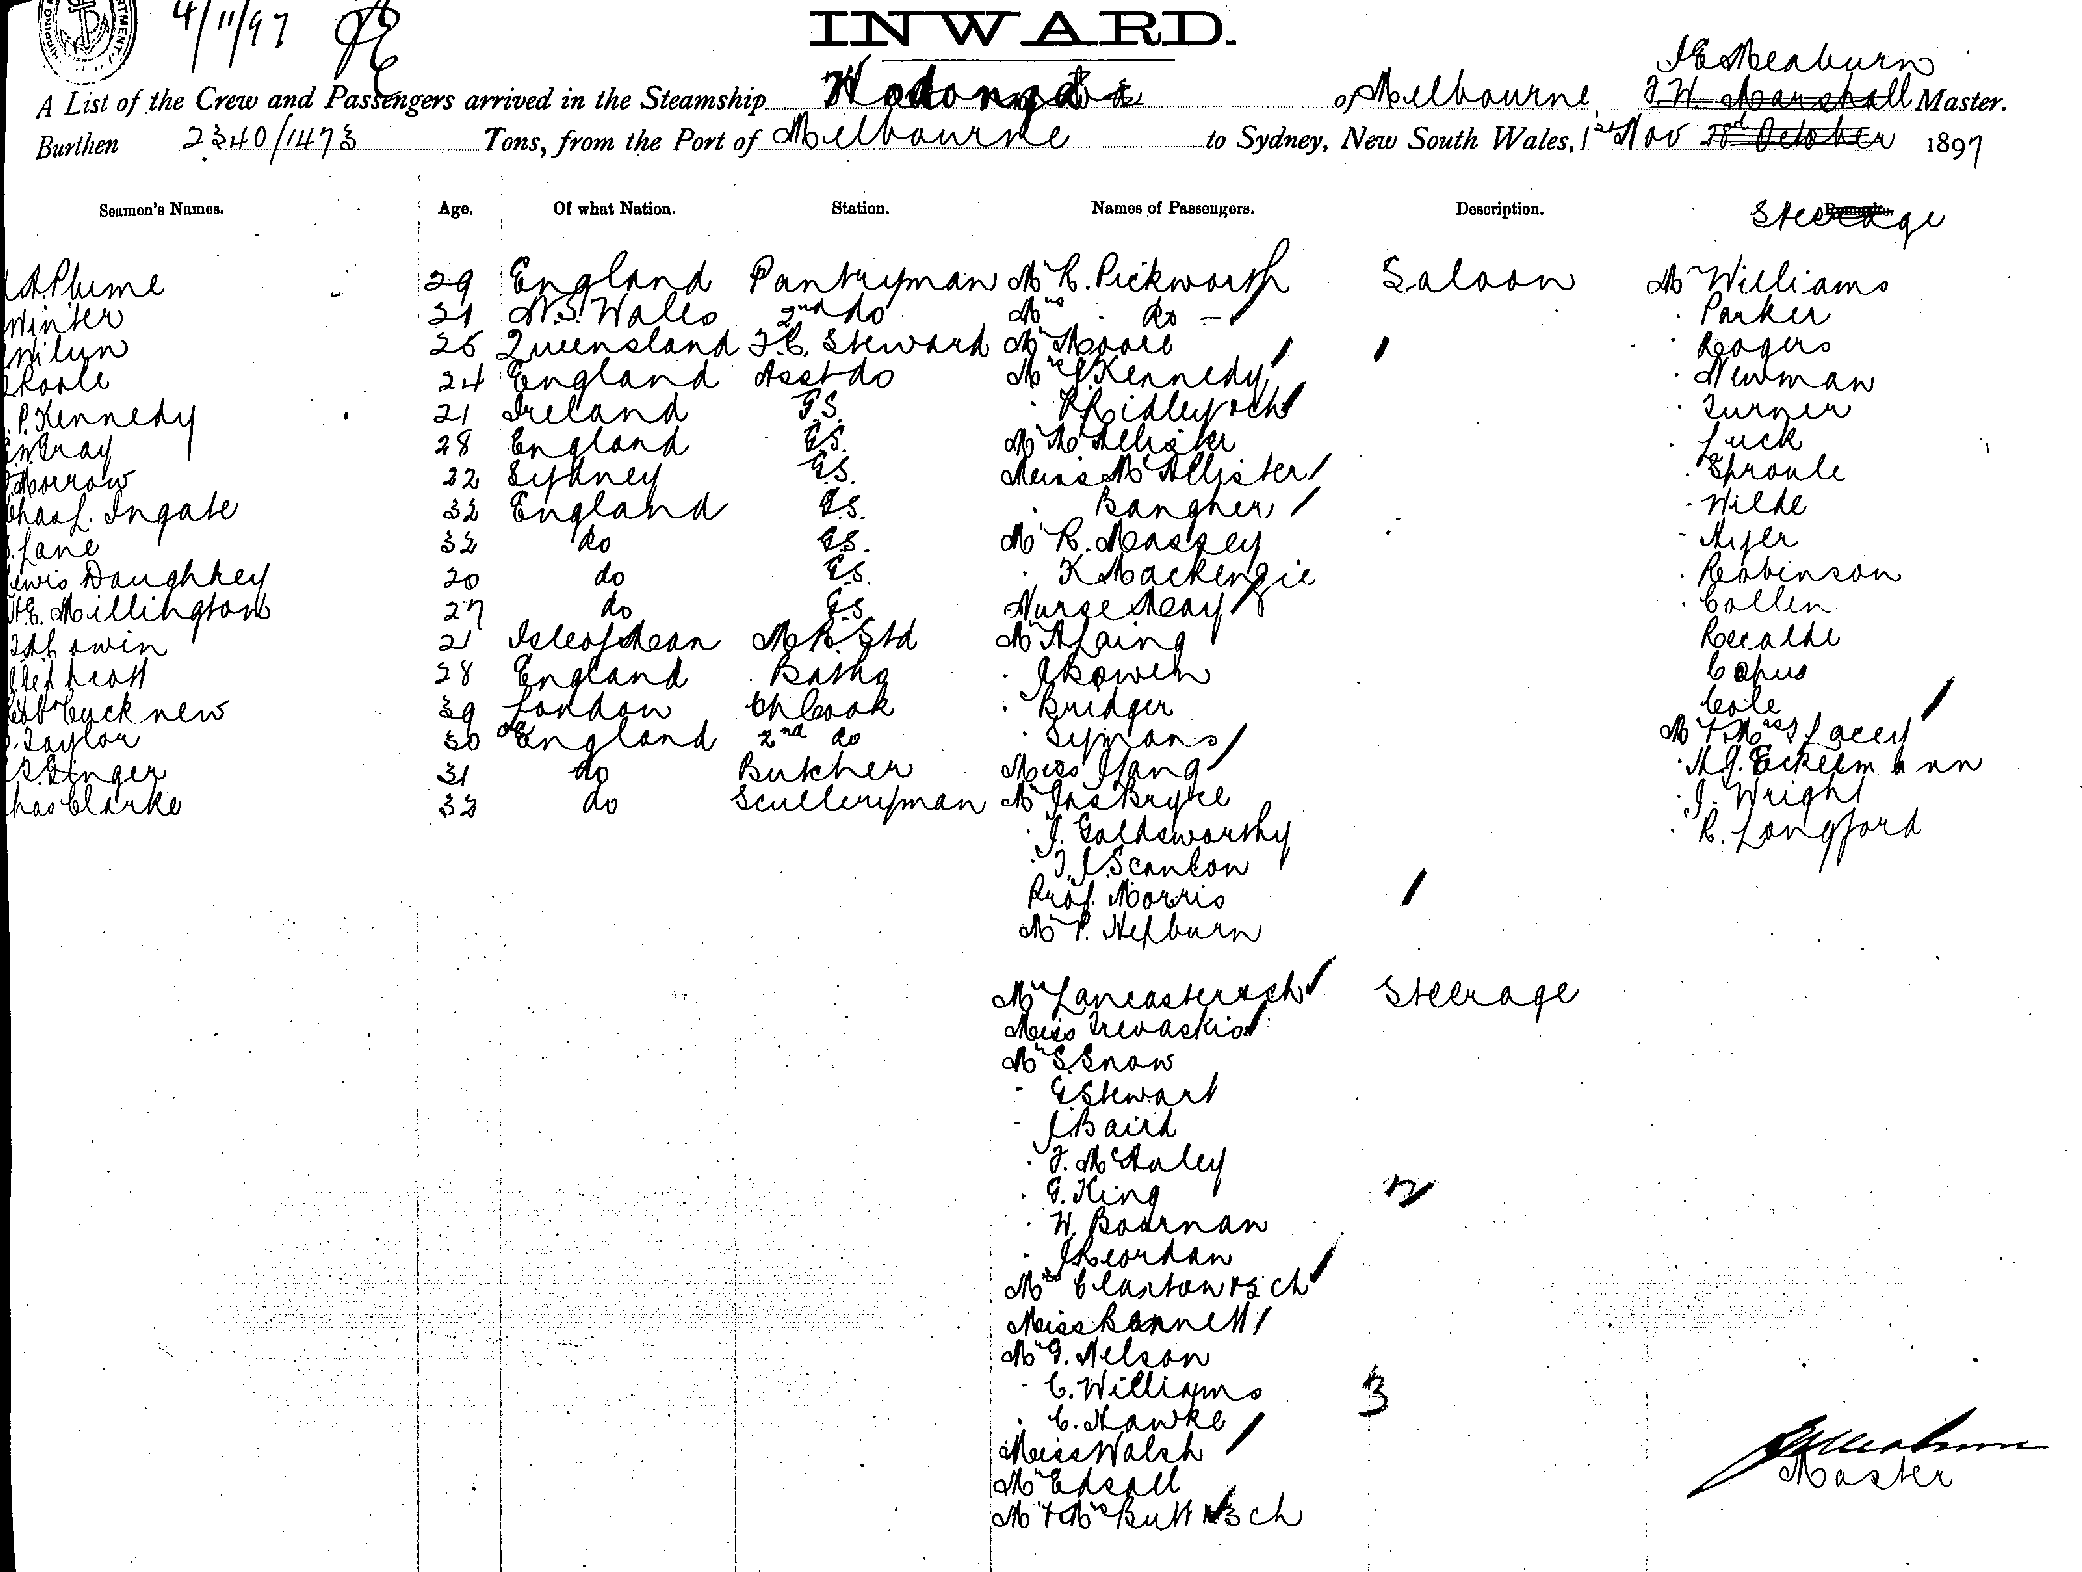 4/11/97
INWARD.
J E Meaburn
A List of the Crew and Passengers arrived in the Steamship Wodonga of Melbourne, J. W. Marshall Master.
Burthen 2340/1473 Tons, from the Port of Melbourne to Sydney, New South Wales, 1st Nov October 1897
Seamen's Names. Age. Of what Nation. Station. Names of Passengers. Description. Steerage
A. Plume 29 England Pantryman Mr R. Pickworth Saloon Mr Williams
Winter 21 N.S. Wales 2nd do Mrs do - Parker
26 Queensland F.C. Steward Mr Moore Rogers
24 England Asst do Kennedy Newman
P. Kennedy 21 Ireland G.S. Ridley & ch Turner
Gray 28 England G.S. Mr McAllister Luck
Morrow 22 Sydney G.S. Miss McAllister Sproule
Chas L. Ingate 32 England G.S. Bangher Wilde
Lane 32 do G.S. Mr R. Massey
Lewis Daughhey 20 do G.S. K Mackenzie Robinson
H.E. Millington 27 do G.S. Nurse May Collen
21 Isle of Man M.R. Std Mr A Laing Recalde
28 England Baths J Bowen Copus
Robt Cucknew 39 London Ch Cook Bridger Cole
Taylor 30 England 2nd do Symons Mr & Mrs Lacey
Singer 31 do Butcher Miss Eckermann
Chas Clarke 32 do Sculleryman Mr Jas Bryce J. Wright
J. Goldsworthy R. Longford
T. J. Scanlon
Prof. Morris
Mr P. Hepburn
Lancaster & ch Steerage
Miss Trevaskis
Mr S. Snow
G Stewart
J Baird
J. McAuley
G. King 2
W. Boarnan
J Reordan
Mrs Claxton & 3 ch
Miss Bannett
Mr G. Nelson
C. Williams 3
C. Hawke
Miss Walsh
Mr Edsall
Mr & Mrs Butt & 3 ch
J E Meaburn
Master